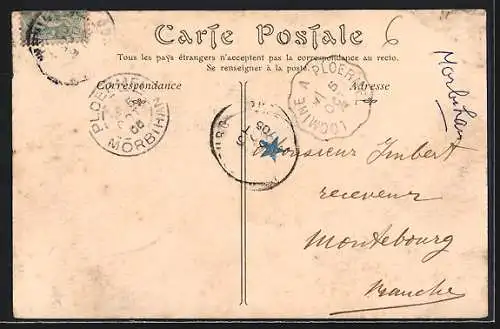 Carte Postale
6
Tous les pays étrangers n'acceptent pas la correspondance au recto.
Se renseigner à la poste.
Morbihan
Correspondance
Adresse
PLOERMEL
MORBIHAN
LOCMINE A PLOERMEL
Monsieur Imbert
receveur
Montebourg
Manche